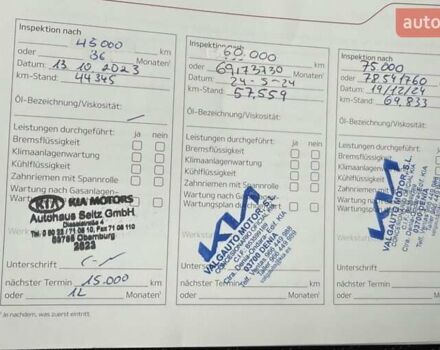 auto
Inspektion nach
45 000 km
oder 36 Monaten¹
Datum: 13.10.2023
km-Stand: 44345
Öl-Bezeichnung/Viskosität:
Leistungen durchgeführt: ja nein
Bremsflüssigkeit
Klimaanlagenwartung
Kühlflüssigkeit
Zahnriemen mit Spannrolle
Wartung nach Gasanlagen-
Wartungsplan
KIA KIA MOTORS
Autohaus Seitz GmbH
63785 Obernburg
Unterschrift
nächster Termin 15.000 km
oder 12 Monaten¹
¹ Je nachdem, was zuerst eintritt.
Inspektion nach
60.000 km
oder 69173730 Monaten¹
Datum: 24-5-24
km-Stand: 57,559
Öl-Bezeichnung/Viskosität:
Leistungen durchgeführt: ja nein
Bremsflüssigkeit
Klimaanlagenwartung
Kühlflüssigkeit
Zahnriemen mit Spannrolle
Wartung nach Gasanlagen-
Wartungsplan durchgeführt
KIA
VALGAUTO MOTOR, S.L.
CONCESIONARIO OFICIAL
Ctra. Denia-Ondara, Edf. KIA
03700 DENIA
Unterschrift
nächster Termin km
oder Monaten¹
Inspektion nach
75.000
oder 78541760
Datum: 19/12/24
km-Stand: 69.833
Öl-Bezeichnung/Viskosität:
Leistungen durchgeführt:
Bremsflüssigkeit
Klimaanlagenwartung
Kühlflüssigkeit
Zahnriemen mit Spannrolle
Wartung nach Gasanlagen-
Wartungsplan
KIA
VALGAUTO MOTOR, S.L.
CONCESIONARIO OFICIAL
Ctra. Denia-Ondara, Edf. KIA
03700 DENIA
Unterschrift
nächster Termin
oder